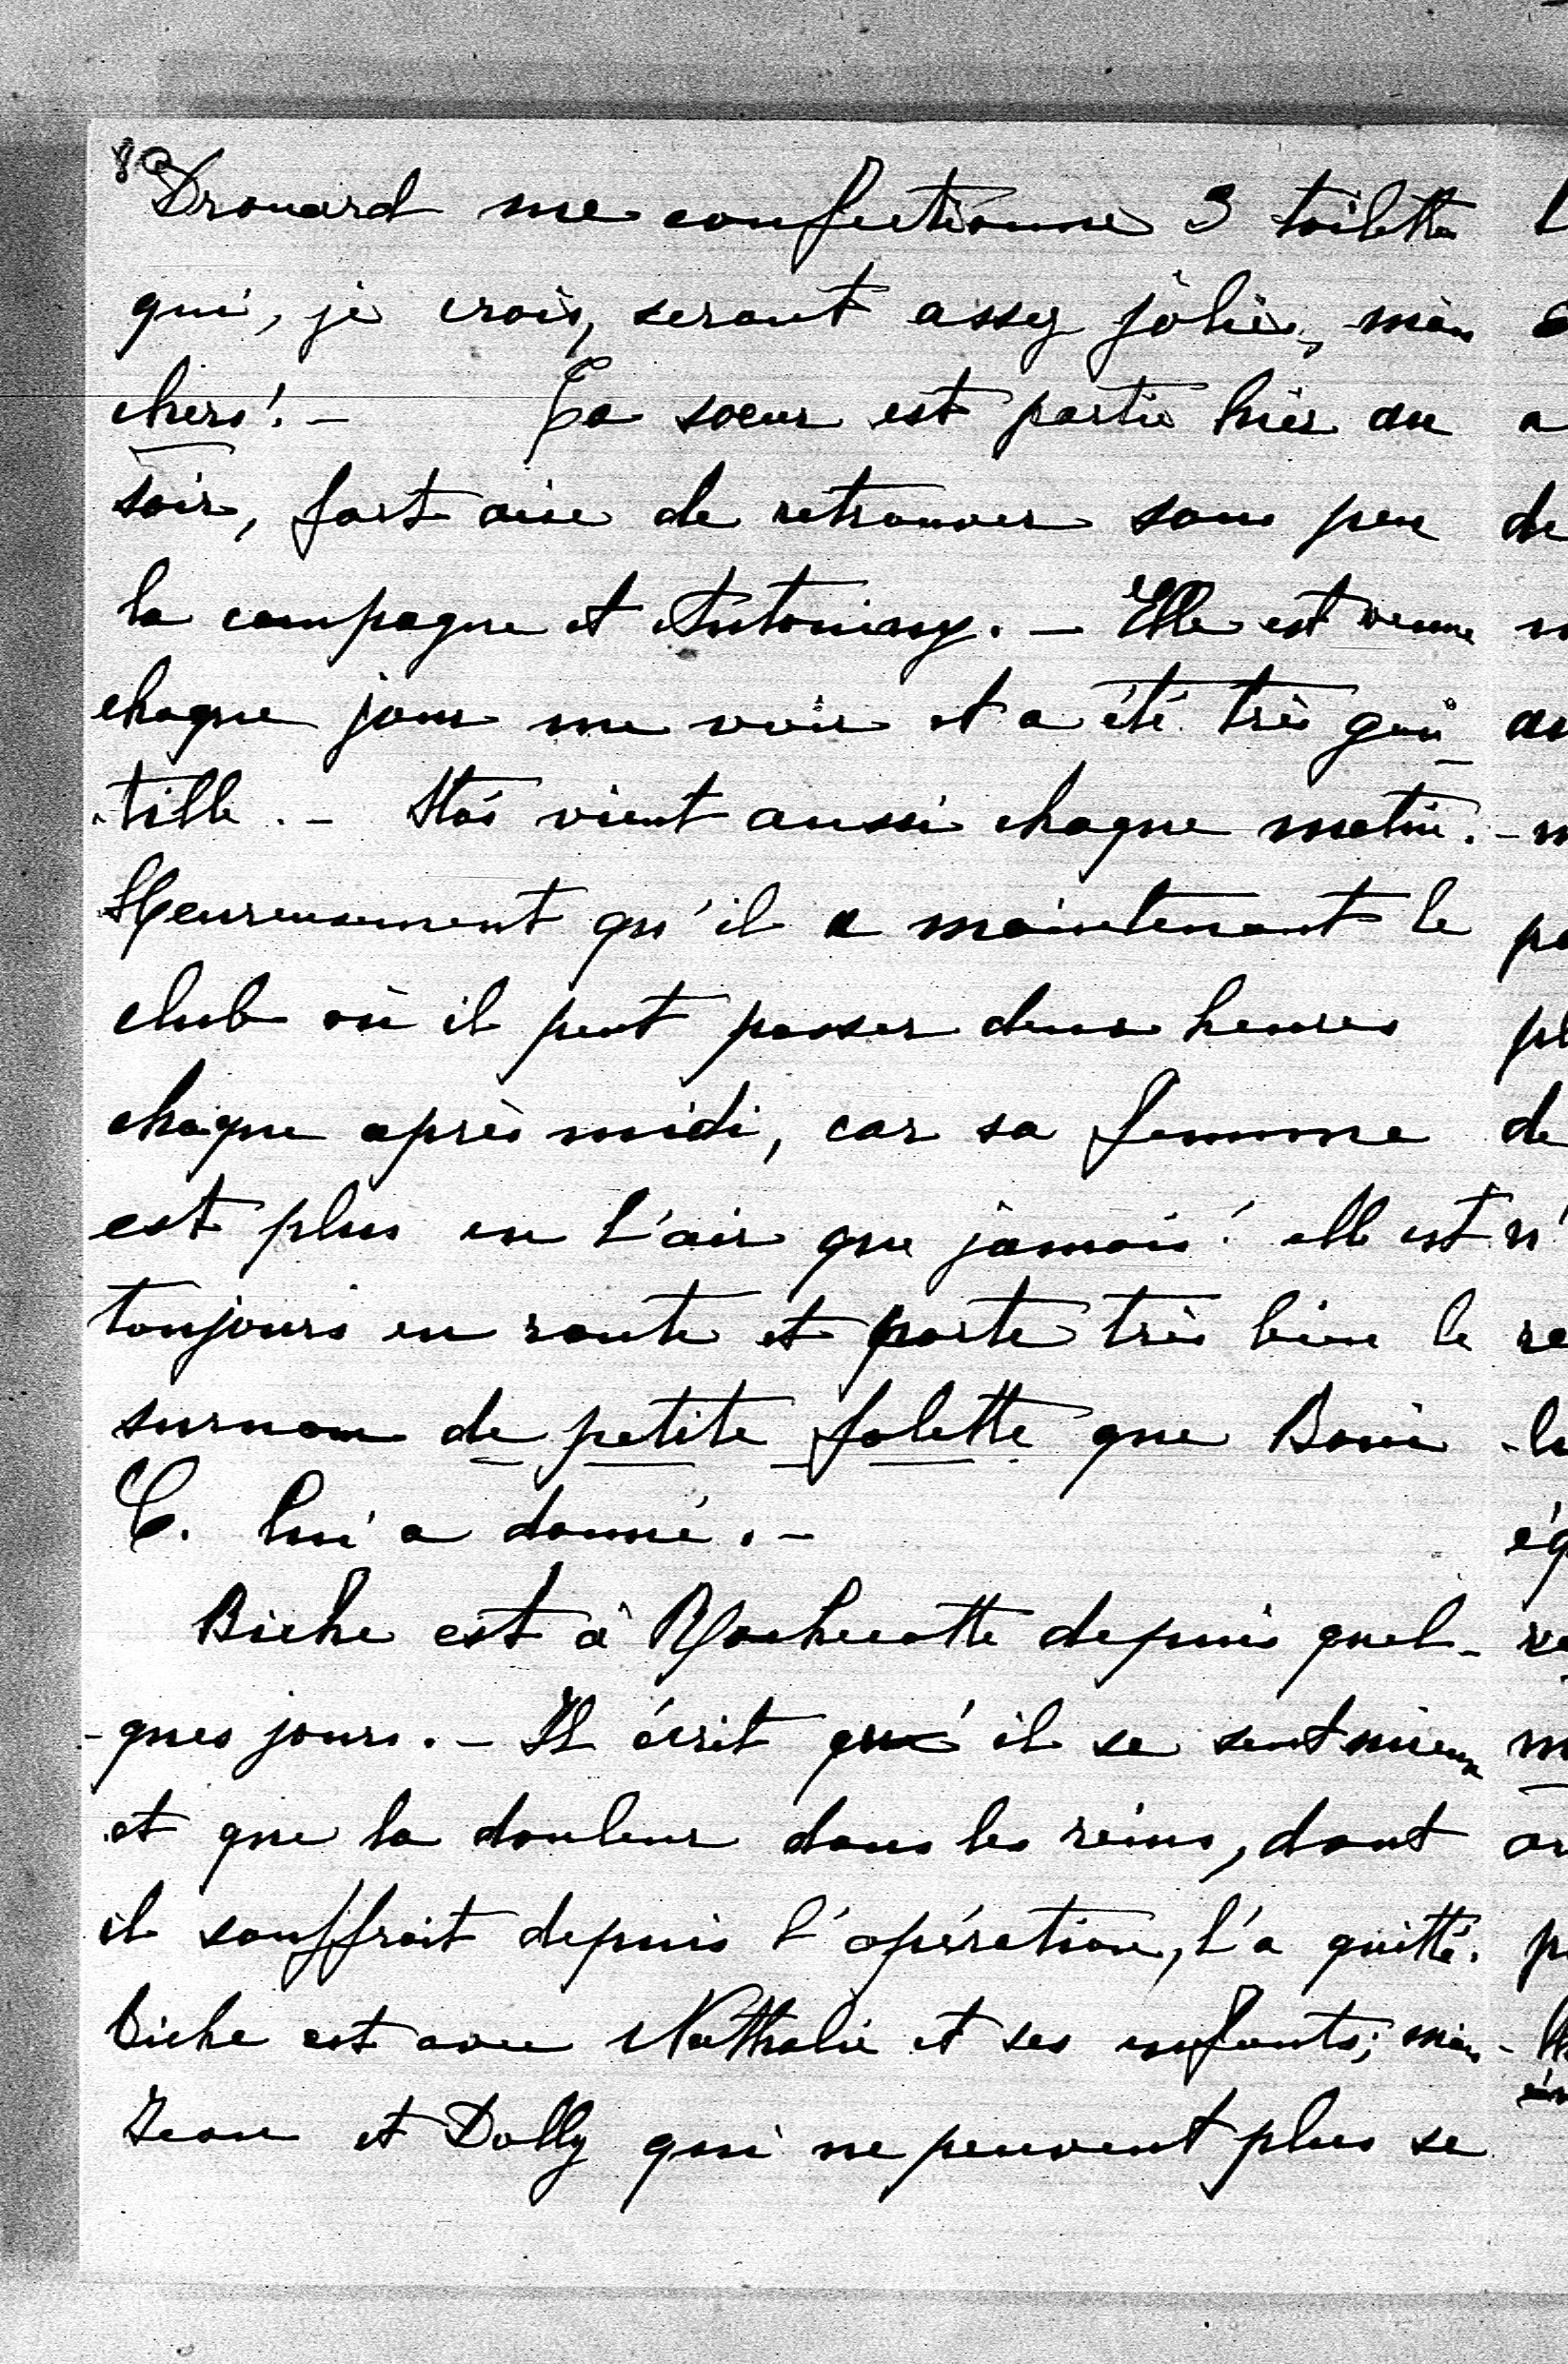 8
Drouard me confectionne 3 toilettes
qui, je crois, seront assez jolies, mais
chers! - Ta soeur est partie hier au
soir, fort aise de retrouver sous peu
la campagne et Antoniny. - Elle est venue
chaque jour me voir et a été très gen-
-tille. - Stas vient aussi chaque matin. -
Heureusement qu'il a maintenant le
club où il peut passer deux heures
chaque après midi, car sa femme
est plus en l'air que jamais! elle est
toujours en route et porte très bien le
surnom de petite folette que Boni
C. lui a donné. -
Biche est à Rochecotte depuis quel-
-ques jours. - Il écrit qu'il se sent mieux
et que la douleur dans les reins, dont
il souffrait depuis l'opération, l'a quitté.
Biche est avec Nathalie et ses enfants; mais
Jean et Dolly qui ne peuvent plus se